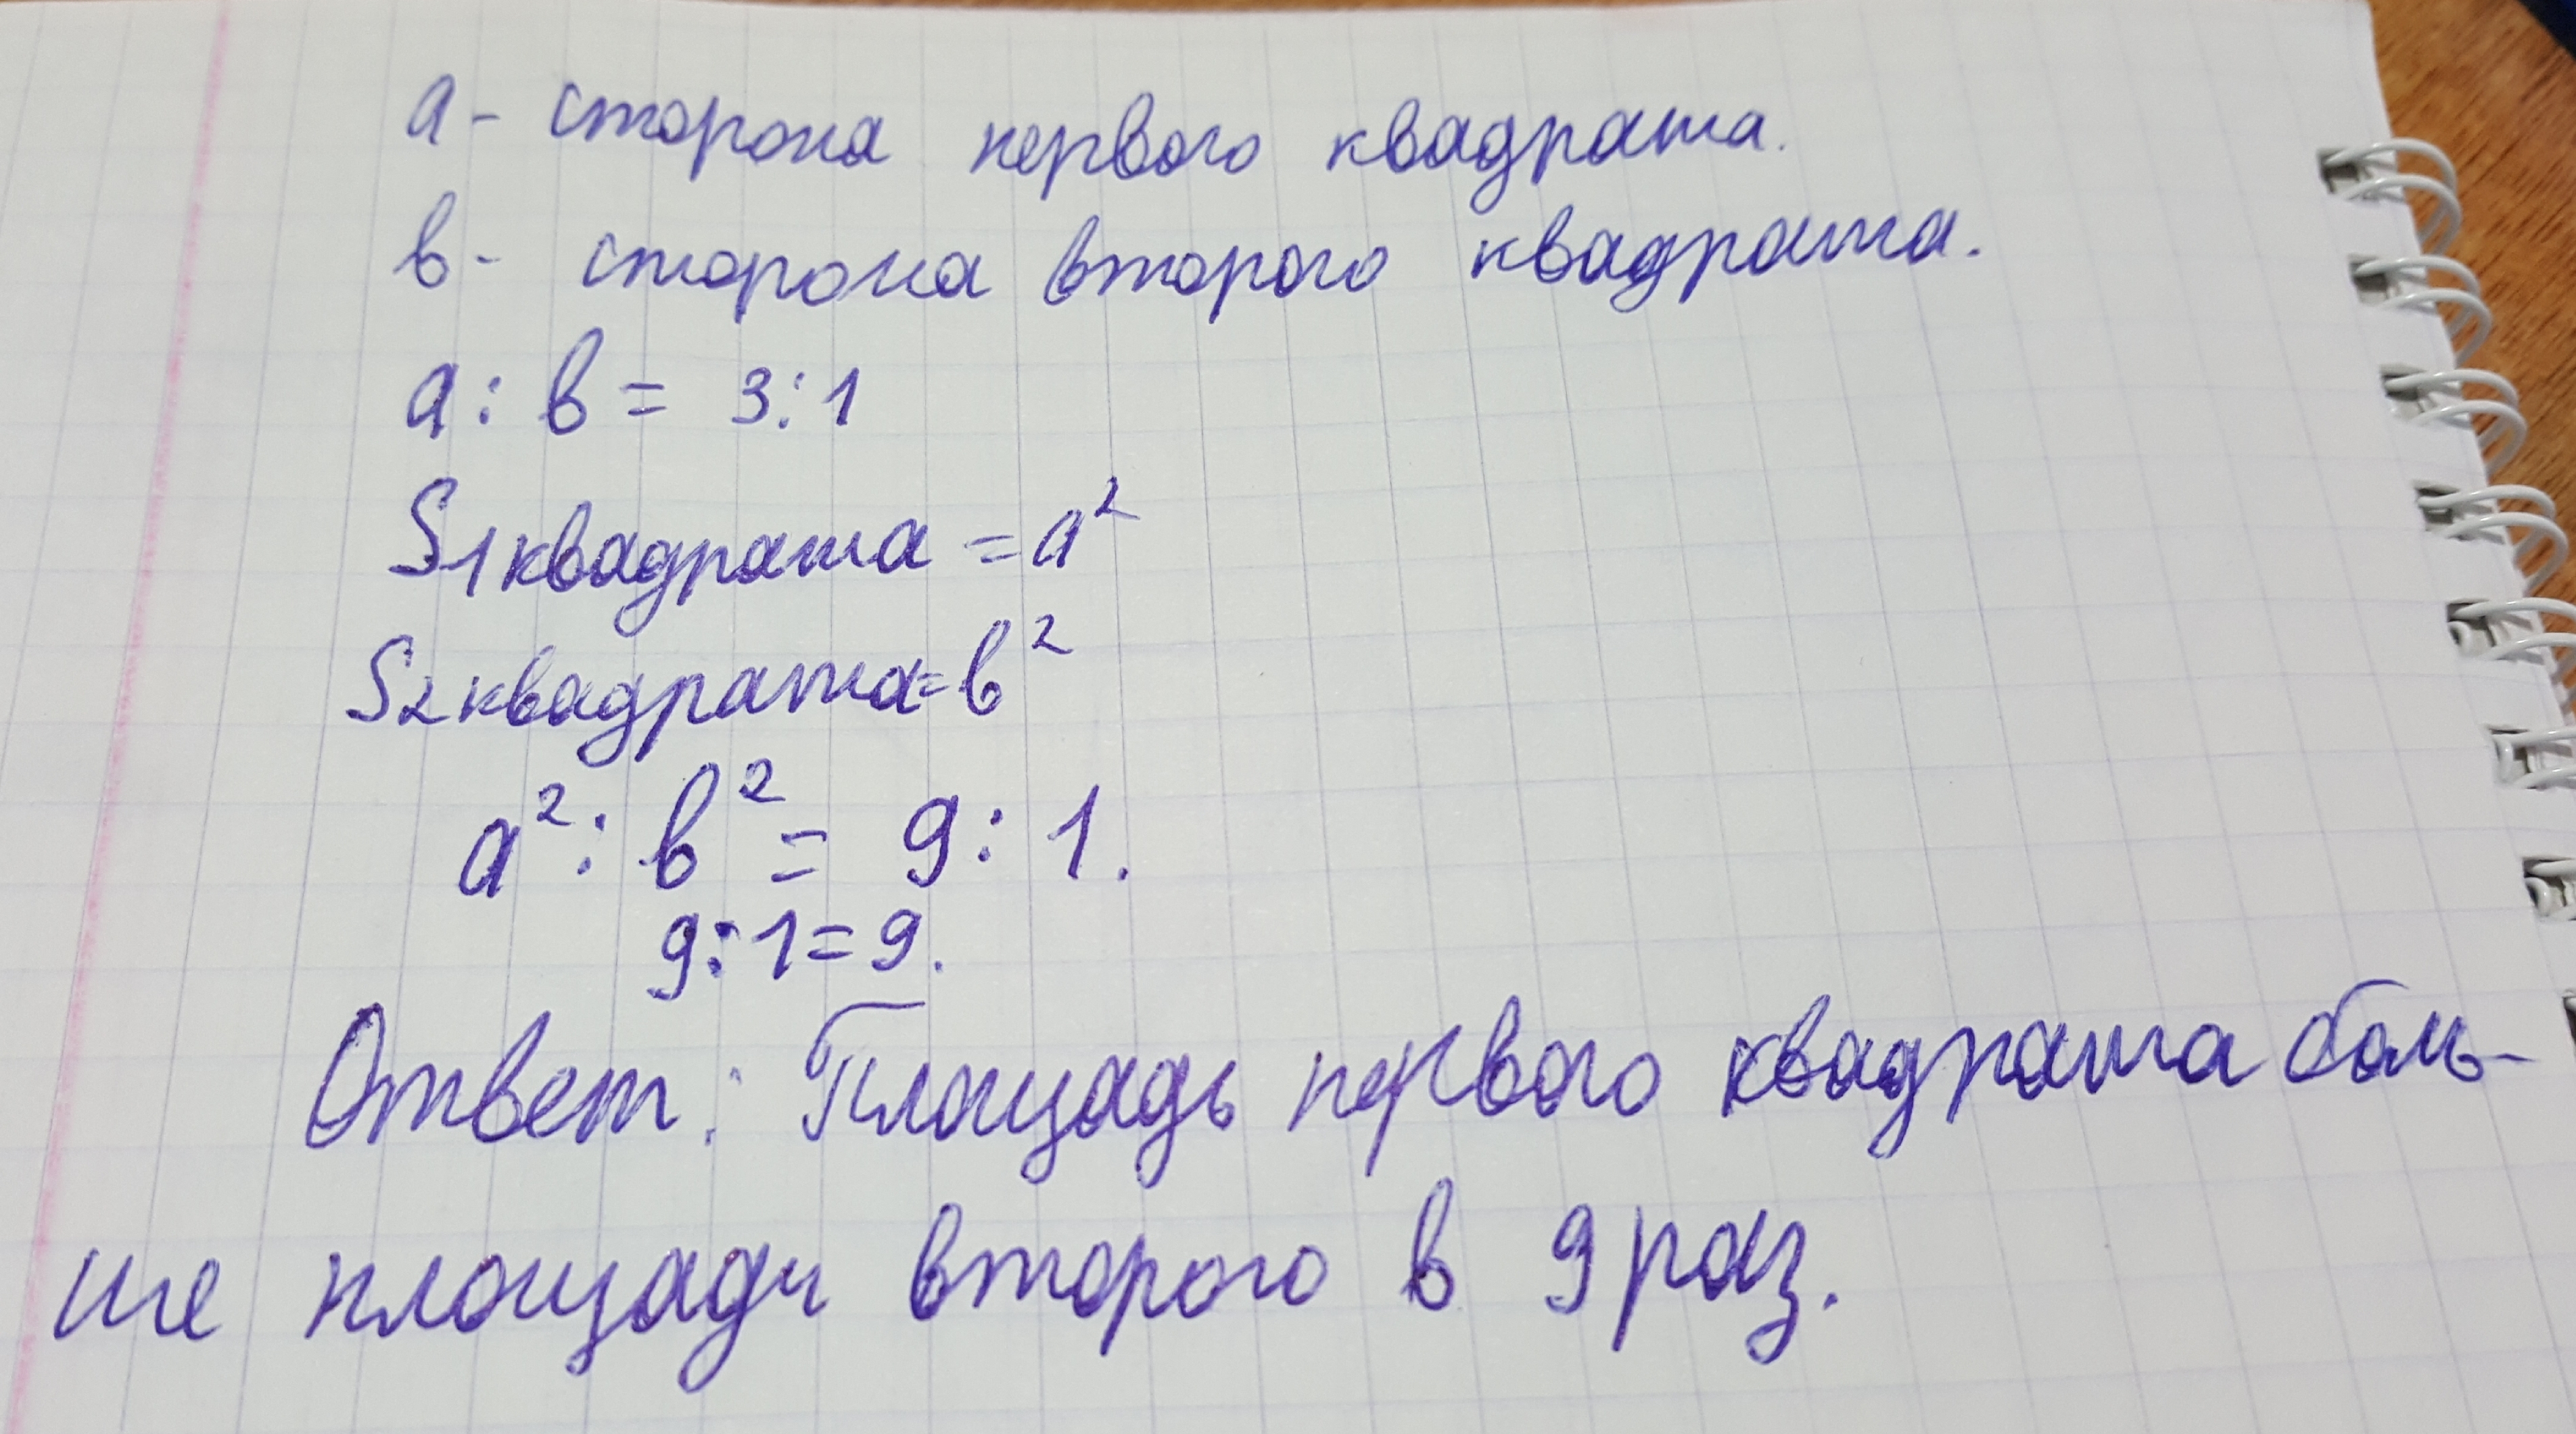 а - сторона первого квадрата.
в - сторона второго квадрата.
а : в = 3:1
S1квадрата = а²
S2квадрата = в²
а² : в² = 9 : 1.
9:1=9.
Ответ: Площадь первого квадрата боль-
ше площади второго в 9 раз.